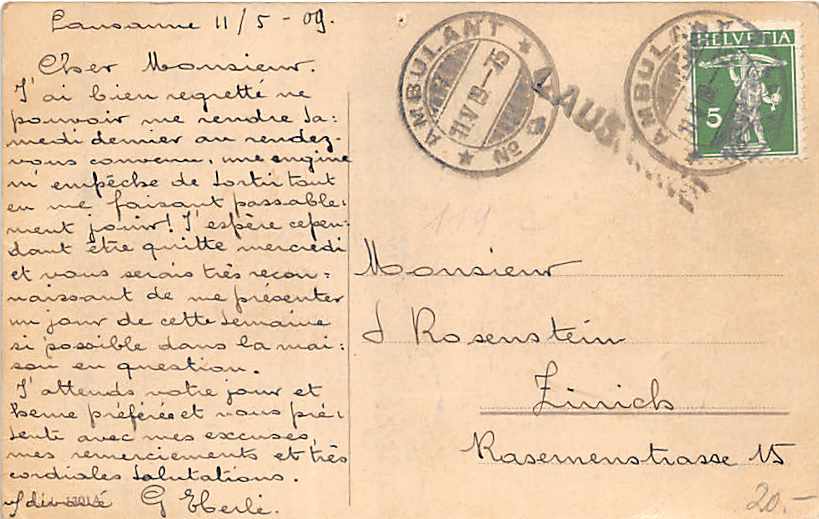 Lausanne 11/5 - 09.
Cher Monsieur.
J'ai bien regretté ne
pouvoir me rendre Sa=
medi dernier au rendez-
vous convenu, une engine
m'empêche de Sortir tout
en me faisant passable=
ment jouir! J'espère cepen=
dant être quitte mercredi
et vous serais très recon=
naissant de me présenter
un jour de cette Semaine
si possible dans la mai=
son en question.
J'attends votre jour et
heure préférée et vous pré=
sente avec mes excuses,
mes remerciements et très
cordiales Salutations.
G Eberlé.
AMBULANT
11.V.09-
No
LAUSANNE
AMBULANT
HELVETIA
5
119
Monsieur
J Rosenstein
Zürich
Kasernenstrasse 15
20.-